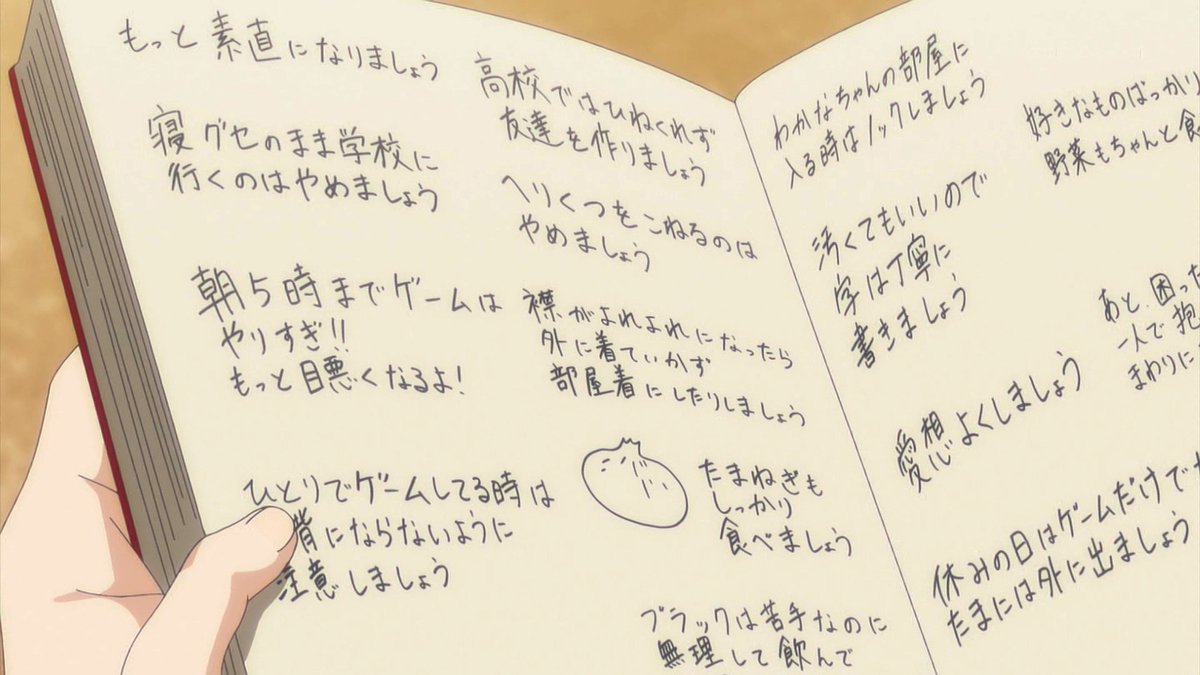 もっと素直になりましょう
寝グセのまま学校に
行くのはやめましょう
朝5時までゲームは
やりすぎ!!
もっと目悪くなるよ!
ひとりでゲームしてる時は
背にならないように
注意しましょう
高校ではひねくれず
友達を作りましょう
へりくつをこねるのは
やめましょう
襟がよれよれになったら
外に着ていかず
部屋着にしたりしましょう
たまねぎも
しっかり
食べましょう
ブラックは苦手なのに
無理して飲んで
わかなちゃんの部屋に
入る時はノックしましょう
好きなものばっかり
野菜もちゃんと食
汚くてもいいので
字は丁寧に
書きましょう
あと、困った
一人で抱
まわりに
愛想よくしましょう
休みの日はゲームだけで
たまには外に出ましょう